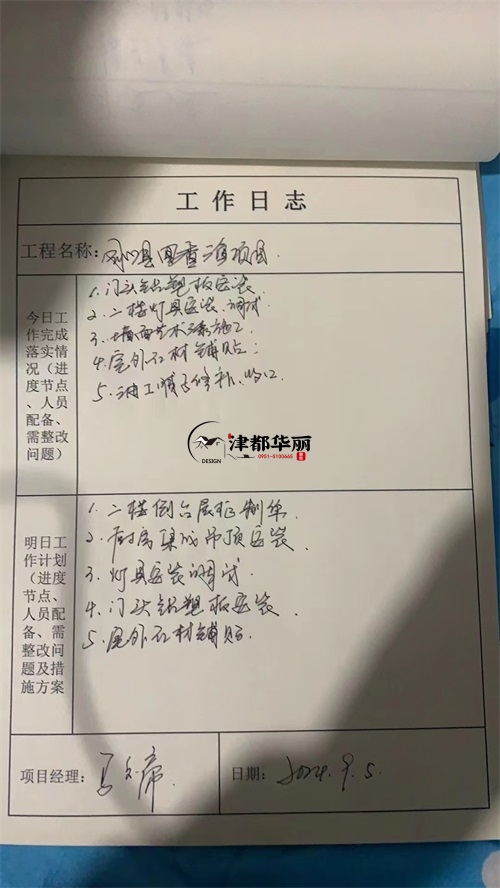 工作日志
工程名称：
今日工作完成落实情况（进度节点、人员配备、需整改问题）
1. 门头铝塑板安装
2. 二楼灯具安装、调试
3. 墙面艺术漆施工
4. 屋外石材铺贴
5. 油工
津都华丽
DESIGN
0951-5100665
明日工作计划（进度节点、人员配备、需整改问题及措施方案）
1. 二楼
2. 厨房集成吊顶安装
3. 灯具安装调试
4. 门头铝塑板安装
5. 屋外石材铺贴
项目经理：
日期：2024.9.5.